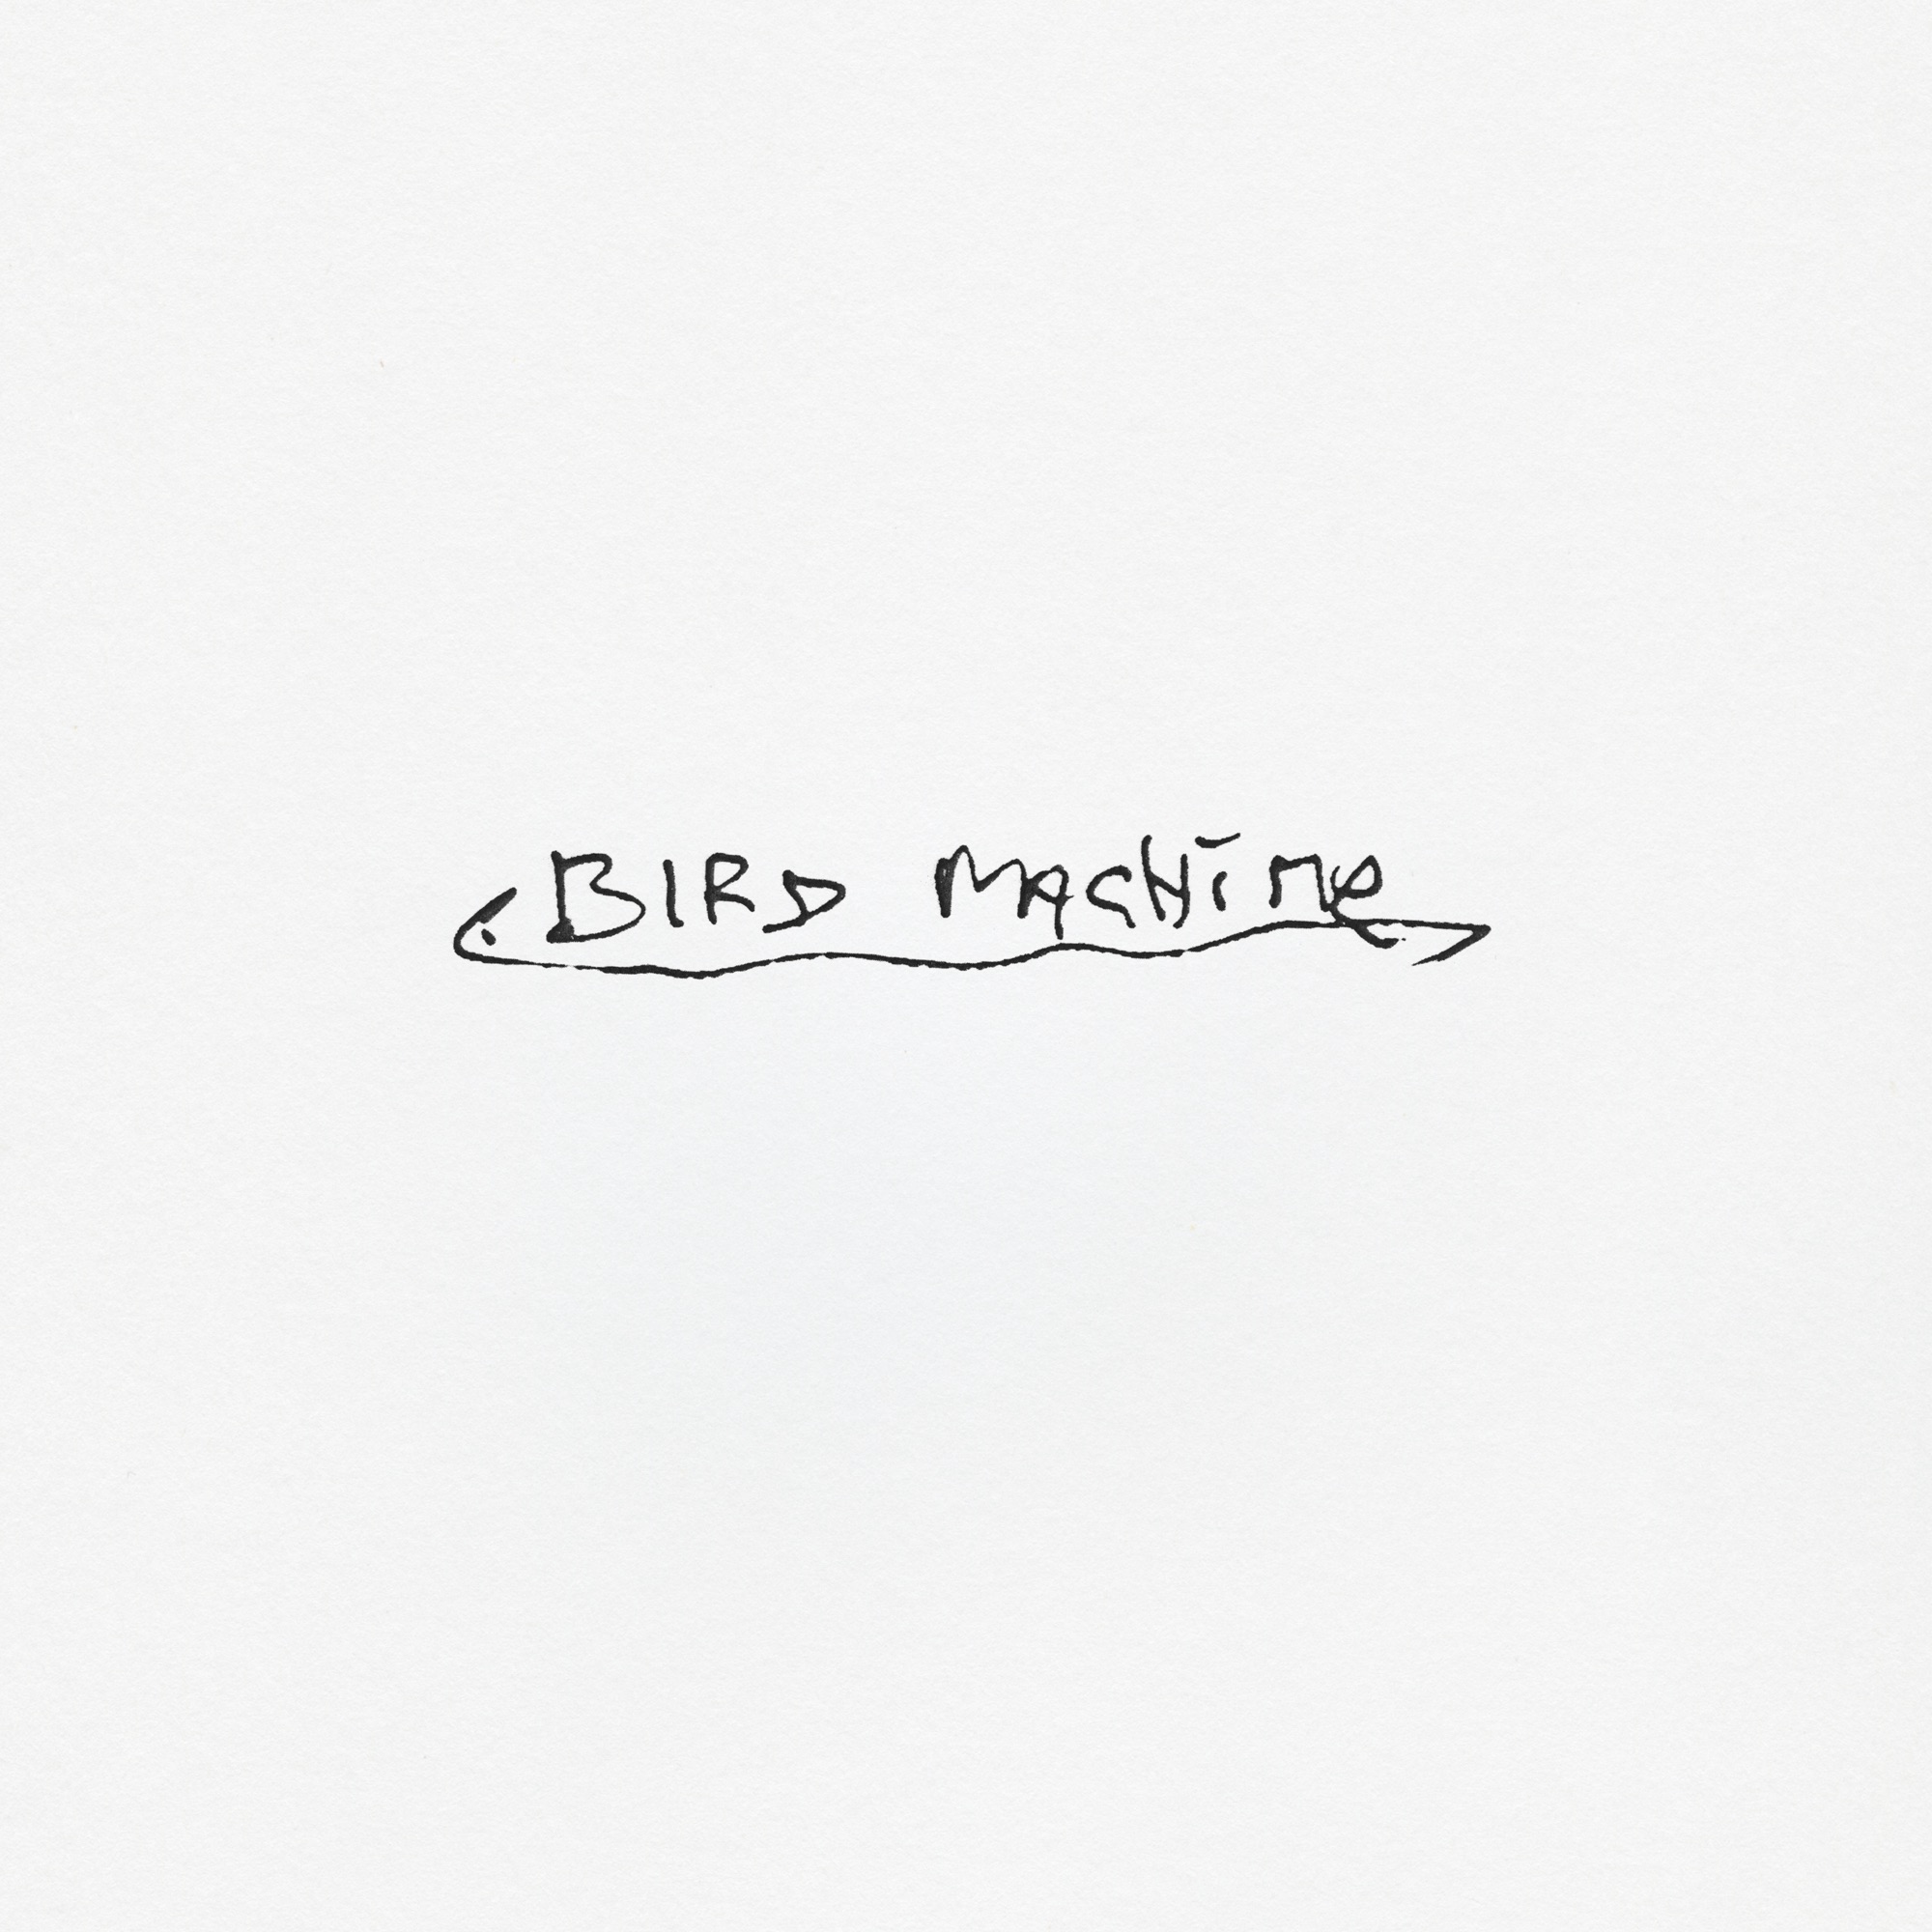 BIRD MacHine